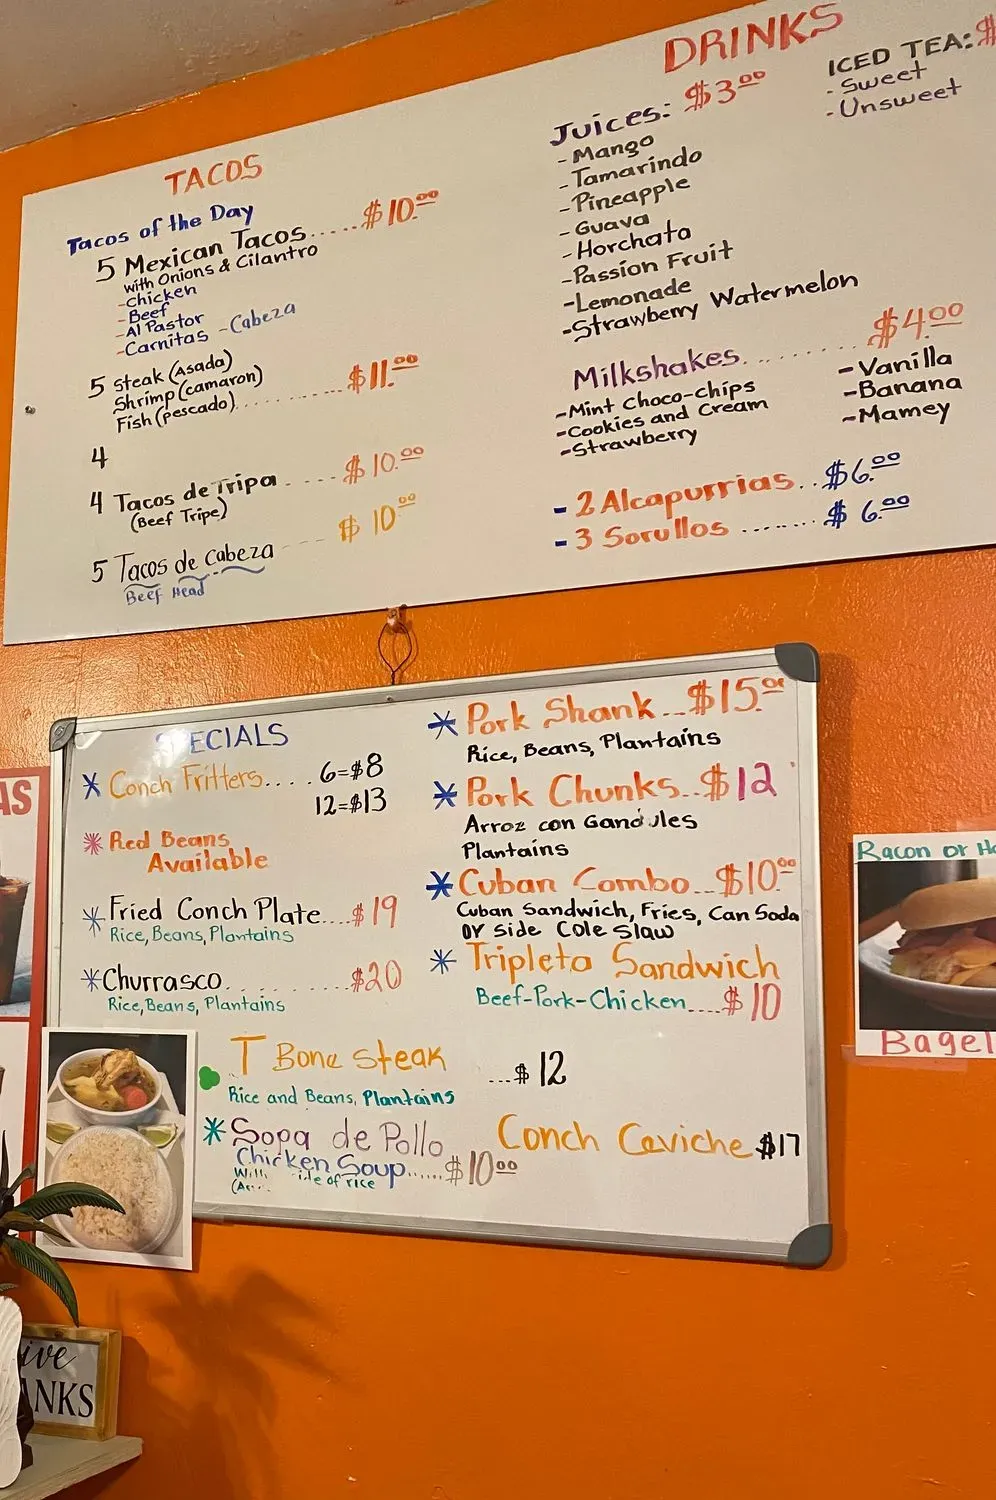 TACOS
Tacos of the Day
5 Mexican Tacos..... $10.00
with Onions & Cilantro
-Chicken
-Beef
-Al Pastor
-Carnitas -Cabeza
5 Steak (Asada)
Shrimp (camaron)
Fish (pescado)......... $11.00
4
4 Tacos de Tripa ..... $10.00
(Beef Tripe)
5 Tacos de Cabeza ---- $10.00
Beef Head
DRINKS
Juices: $3.00
-Mango
-Tamarindo
-Pineapple
-Guava
-Horchata
-Passion Fruit
-Lemonade
-Strawberry Watermelon
ICED TEA: $
-Sweet
-Unsweet
Milkshakes......... $4.00
-Mint Choco-Chips
-Cookies and Cream
-Strawberry
-Vanilla
-Banana
-Mamey
-2 Alcapurrias..$6.00
-3 Sorullos .......$6.00
SPECIALS
* Conch Fritters.... 6=$8
12=$13
* Red Beans
Available
* Fried Conch Plate...$19
Rice, Beans, Plantains
* Churrasco..........$20
Rice, Beans, Plantains
* Pork Shank...$15.00
Rice, Beans, Plantains
* Pork Chunks..$12
Arroz con Gandules
Plantains
* Cuban Combo..$10.00
Cuban Sandwich, Fries, Can Soda
or side Cole Slaw
* Tripleta Sandwich
Beef-Pork-Chicken....$10
T Bone Steak ...$12
Rice and Beans, Plantains
* Sopa de Pollo
Chicken Soup......$10.00
side of rice
Conch Ceviche $17
AS
Bacon or
Bagel
ive
ANKS